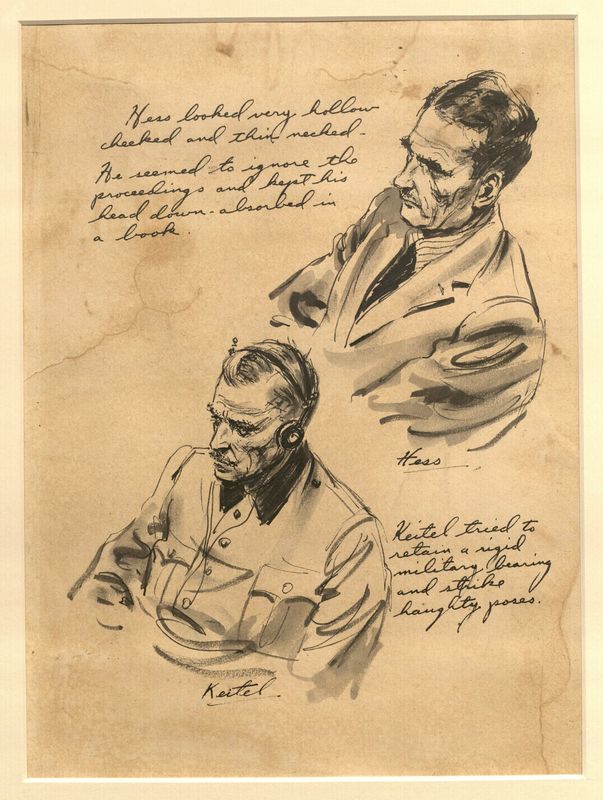 Hess looked very hollow
cheeked and thin necked-
He seemed to ignore the
proceedings and kept his
head down - absorbed in
a book.
Hess
Keitel tried to
retain a rigid
military bearing
and strike
haughty poses.
Keitel.